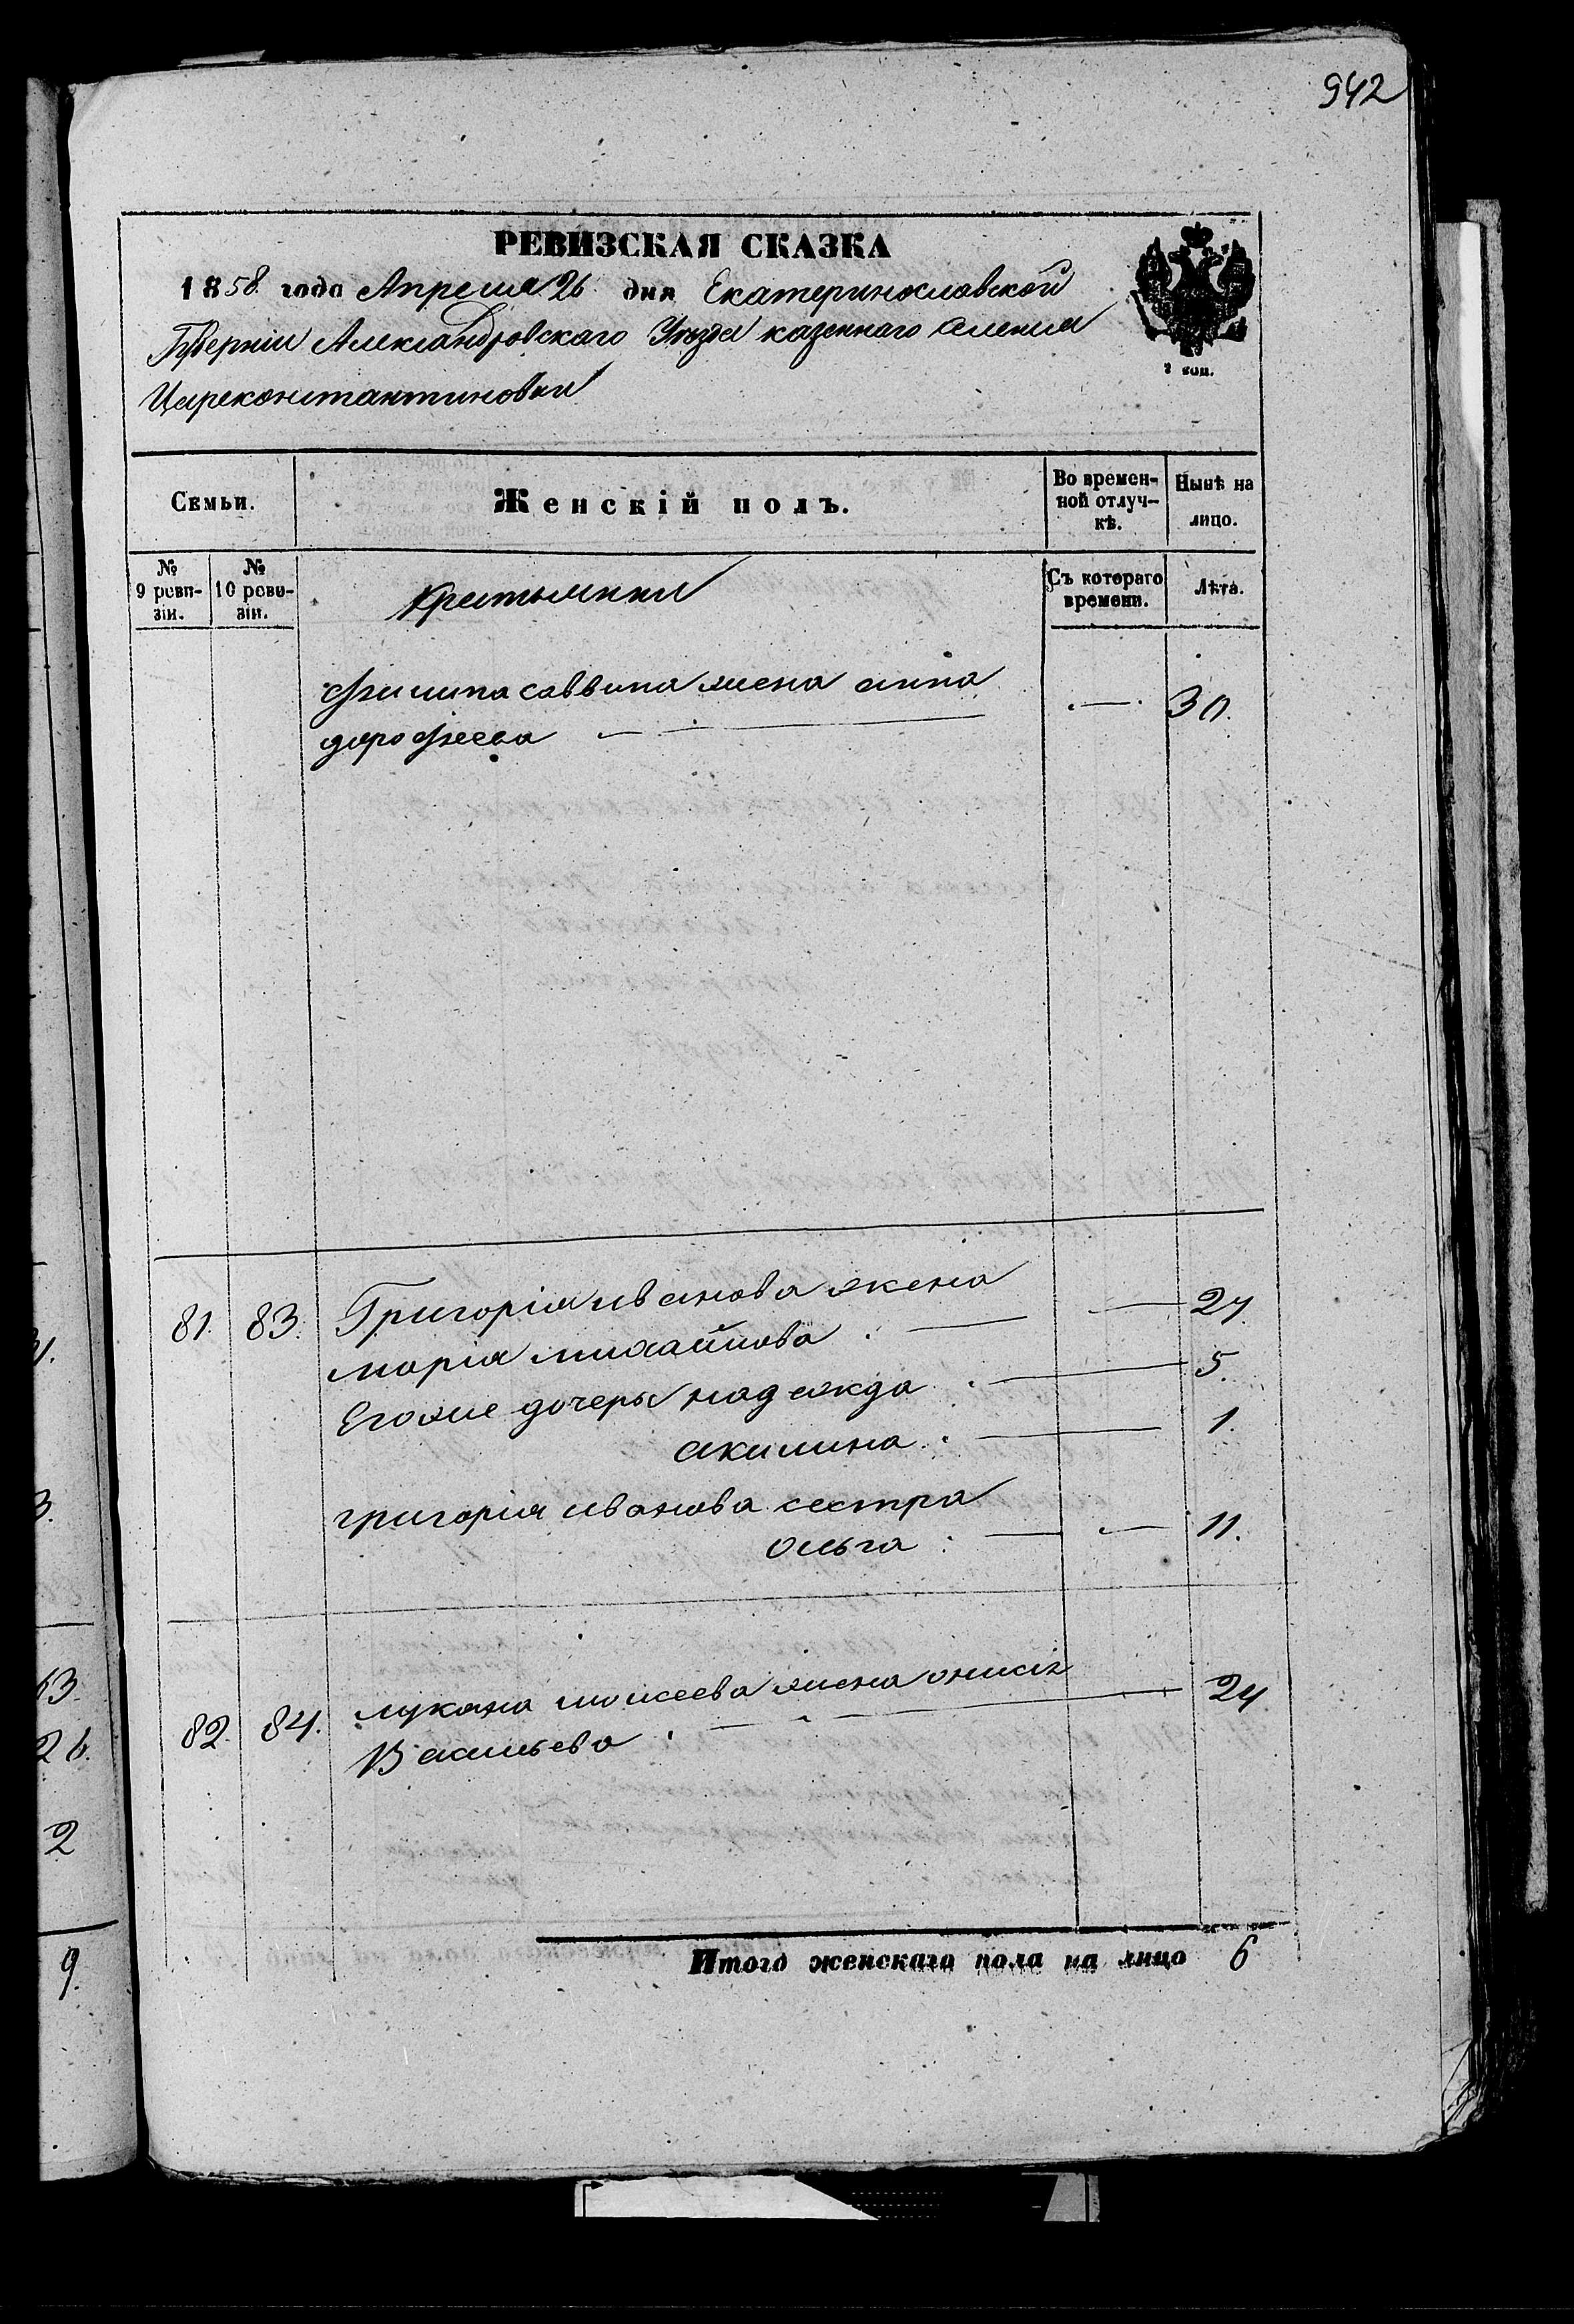 942
РЕВИЗСКАЯ СКАЗКА
1858 года Апреля 26 дня Екатеринославской
Губерніи Александровскаго Уѣзда казеннаго селенія
Цареконстантиновки
2 коп.
Семьи.
Женскій полъ.
Во времен-
ной отлуч-
кѣ.
Нынѣ на
лицо.
№
9 реви-
зіи.
№
10 реви-
зіи.
Крестьянки
Съ котораго
времени.
Лѣта.
Филипа саввина жена анна
дорофеева 30.
81. 83. Григорія иванова жена
марія михайлова 27.
Его же дочеры надежда 5.
акилина 1.
григорія иванова сестра
Ольга 11.
82. 84. лукяна моисеева жена онисія
Васильева 24
Итого женскаго пола на лицо 6
3.
53.
26.
2
9.